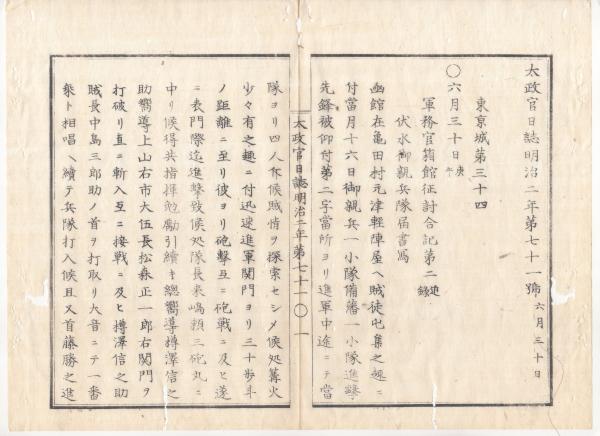 太政官日誌明治二年第七十一號 六月三十日
東京城第三十四
〇六月三十日庚午
軍務官箱館征討合記第二追録
伏水御親兵隊届書寫
函館在亀田村元津軽陣屋ヘ賊徒屯集之趣ニ
付當月十六日御親兵一小隊備藩一小隊進撃
先鋒被仰付第二字當所ヨリ進軍中途ニテ當
太政官日誌明治二年第七十一 〇一
隊ヨリ四人斥候賊情ヲ探索セシメ候処篝火
少々有之趣ニ付迅速進軍関門ヨリ三十歩斗
ノ距離ニ至リ彼ヨリ砲撃互ニ砲戦ニ及ヒ遂
ニ表門際迄進撃致候処隊長来嶋頼三砲丸ニ
中リ候得共指揮勉勵引續キ總嚮導搏澤信之
助嚮導上山右市大伍長松森正一郎右関門ヲ
打破リ直ニ斬入互ニ接戦ニ及ヒ搏澤信之助
賊長中島三郎助ノ首ヲ打取リ大音ニテ一番
乗ト相唱ヘ續テ兵隊打入候且又首藤勝之進